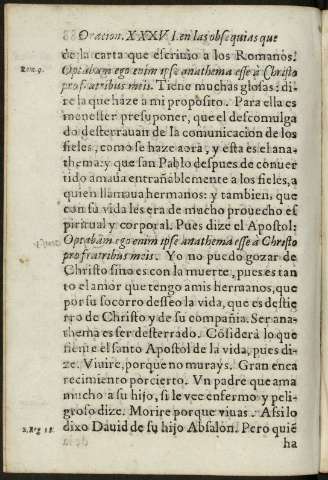 Oracion. XXXVI. en las obsequias que
de la carta que escriuio a los Romanos.
Rom. 9.
Optabam ego enim ipse anathema esse à Christo
pro fratribus meis. Tiene muchas glosas: di-
re la que haze a mi proposito. Para ella es
menester presuponer, que el descomulga
do desterrauan de la comunicacion de los
fieles, como se haze aora, y esta es el ana-
thema: y que san Pablo despues de conuer
tido amaua entrañablemente a los fieles, a
quien llamaua hermanos: y tambien, que
con su vida les era de mucho prouecho es
piritual y corporal. Pues dize el Apostol:
Optabãm ego enim ipse anathema esse à Christo
pro fratribus meis. Yo no puedo gozar de
Christo sino es con la muerte, pues es tan
to el amor que tengo amis hermanos, que
por su socorro desseo la vida, que es destie
rro de Christo y de su compañia. Ser ana-
thema es ser desterrado. Cõsiderá lo que
siente el santo Apostol de la vida, pues di-
ze. Viuire, porque no murays. Gran enca
recimiento por cierto. Vn padre que ama
mucho a su hijo, si le vee enfermo y peli-
groso dize. Morire porque viuas. Assi lo
2. Reg. 18.
dixo Dauid de su hijo Absalón. Pero quiẽ
ha